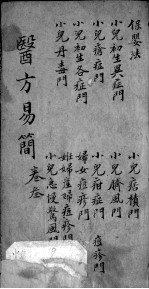 保嬰法
小兒初生異症門
小兒瘡症門
小兒初生各症門
小兒丹毒門
小兒痞積門
小兒臍風門
小兒疳症門
婦女痘疹門
妊婦產婦痘疹門
小兒急慢驚風門
痘疹門
醫方易簡
卷叁